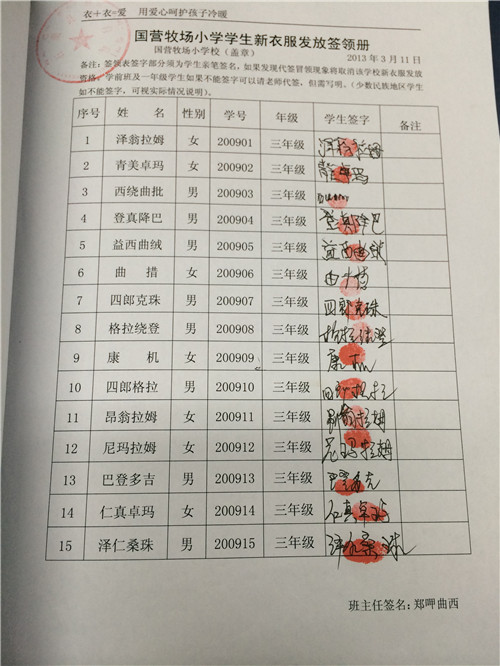 衣＋衣=爱 用爱心呵护孩子冷暖
国营牧场小学学生新衣服发放签领册
国营牧场小学校（盖章） 2013年3月11日
备注：签领表签字部分须为学生亲笔签名，如果发现代签冒领现象将取消该学校新衣服发放
资格，学前班及一年级学生如果不能签字可以请老师代签，但需写明。（少数民族地区学生
如不能签字，可视实际情况说明）。
序号 姓名 性别 学号 年级 学生签字 备注
1 泽翁拉姆 女 200901 三年级 泽翁拉姆
2 青美卓玛 女 200902 三年级
3 西绕曲批 男 200903 三年级
4 登真降巴 男 200904 三年级 登真降巴
5 益西曲绒 男 200905 三年级 益西曲绒
6 曲措 女 200906 三年级 曲措
7 四郎克珠 男 200907 三年级 四郎克珠
8 格拉绕登 男 200908 三年级 格拉绕登
9 康机 女 200909 三年级 康机
10 四郎格拉 男 200910 三年级 四郎格拉
11 昂翁拉姆 女 200911 三年级 昂翁拉姆
12 尼玛拉姆 女 200912 三年级 尼玛拉姆
13 巴登多吉 男 200913 三年级
14 仁真卓玛 女 200914 三年级 仁真卓玛
15 泽仁桑珠 男 200915 三年级 泽仁桑珠
班主任签名：郑呷曲西